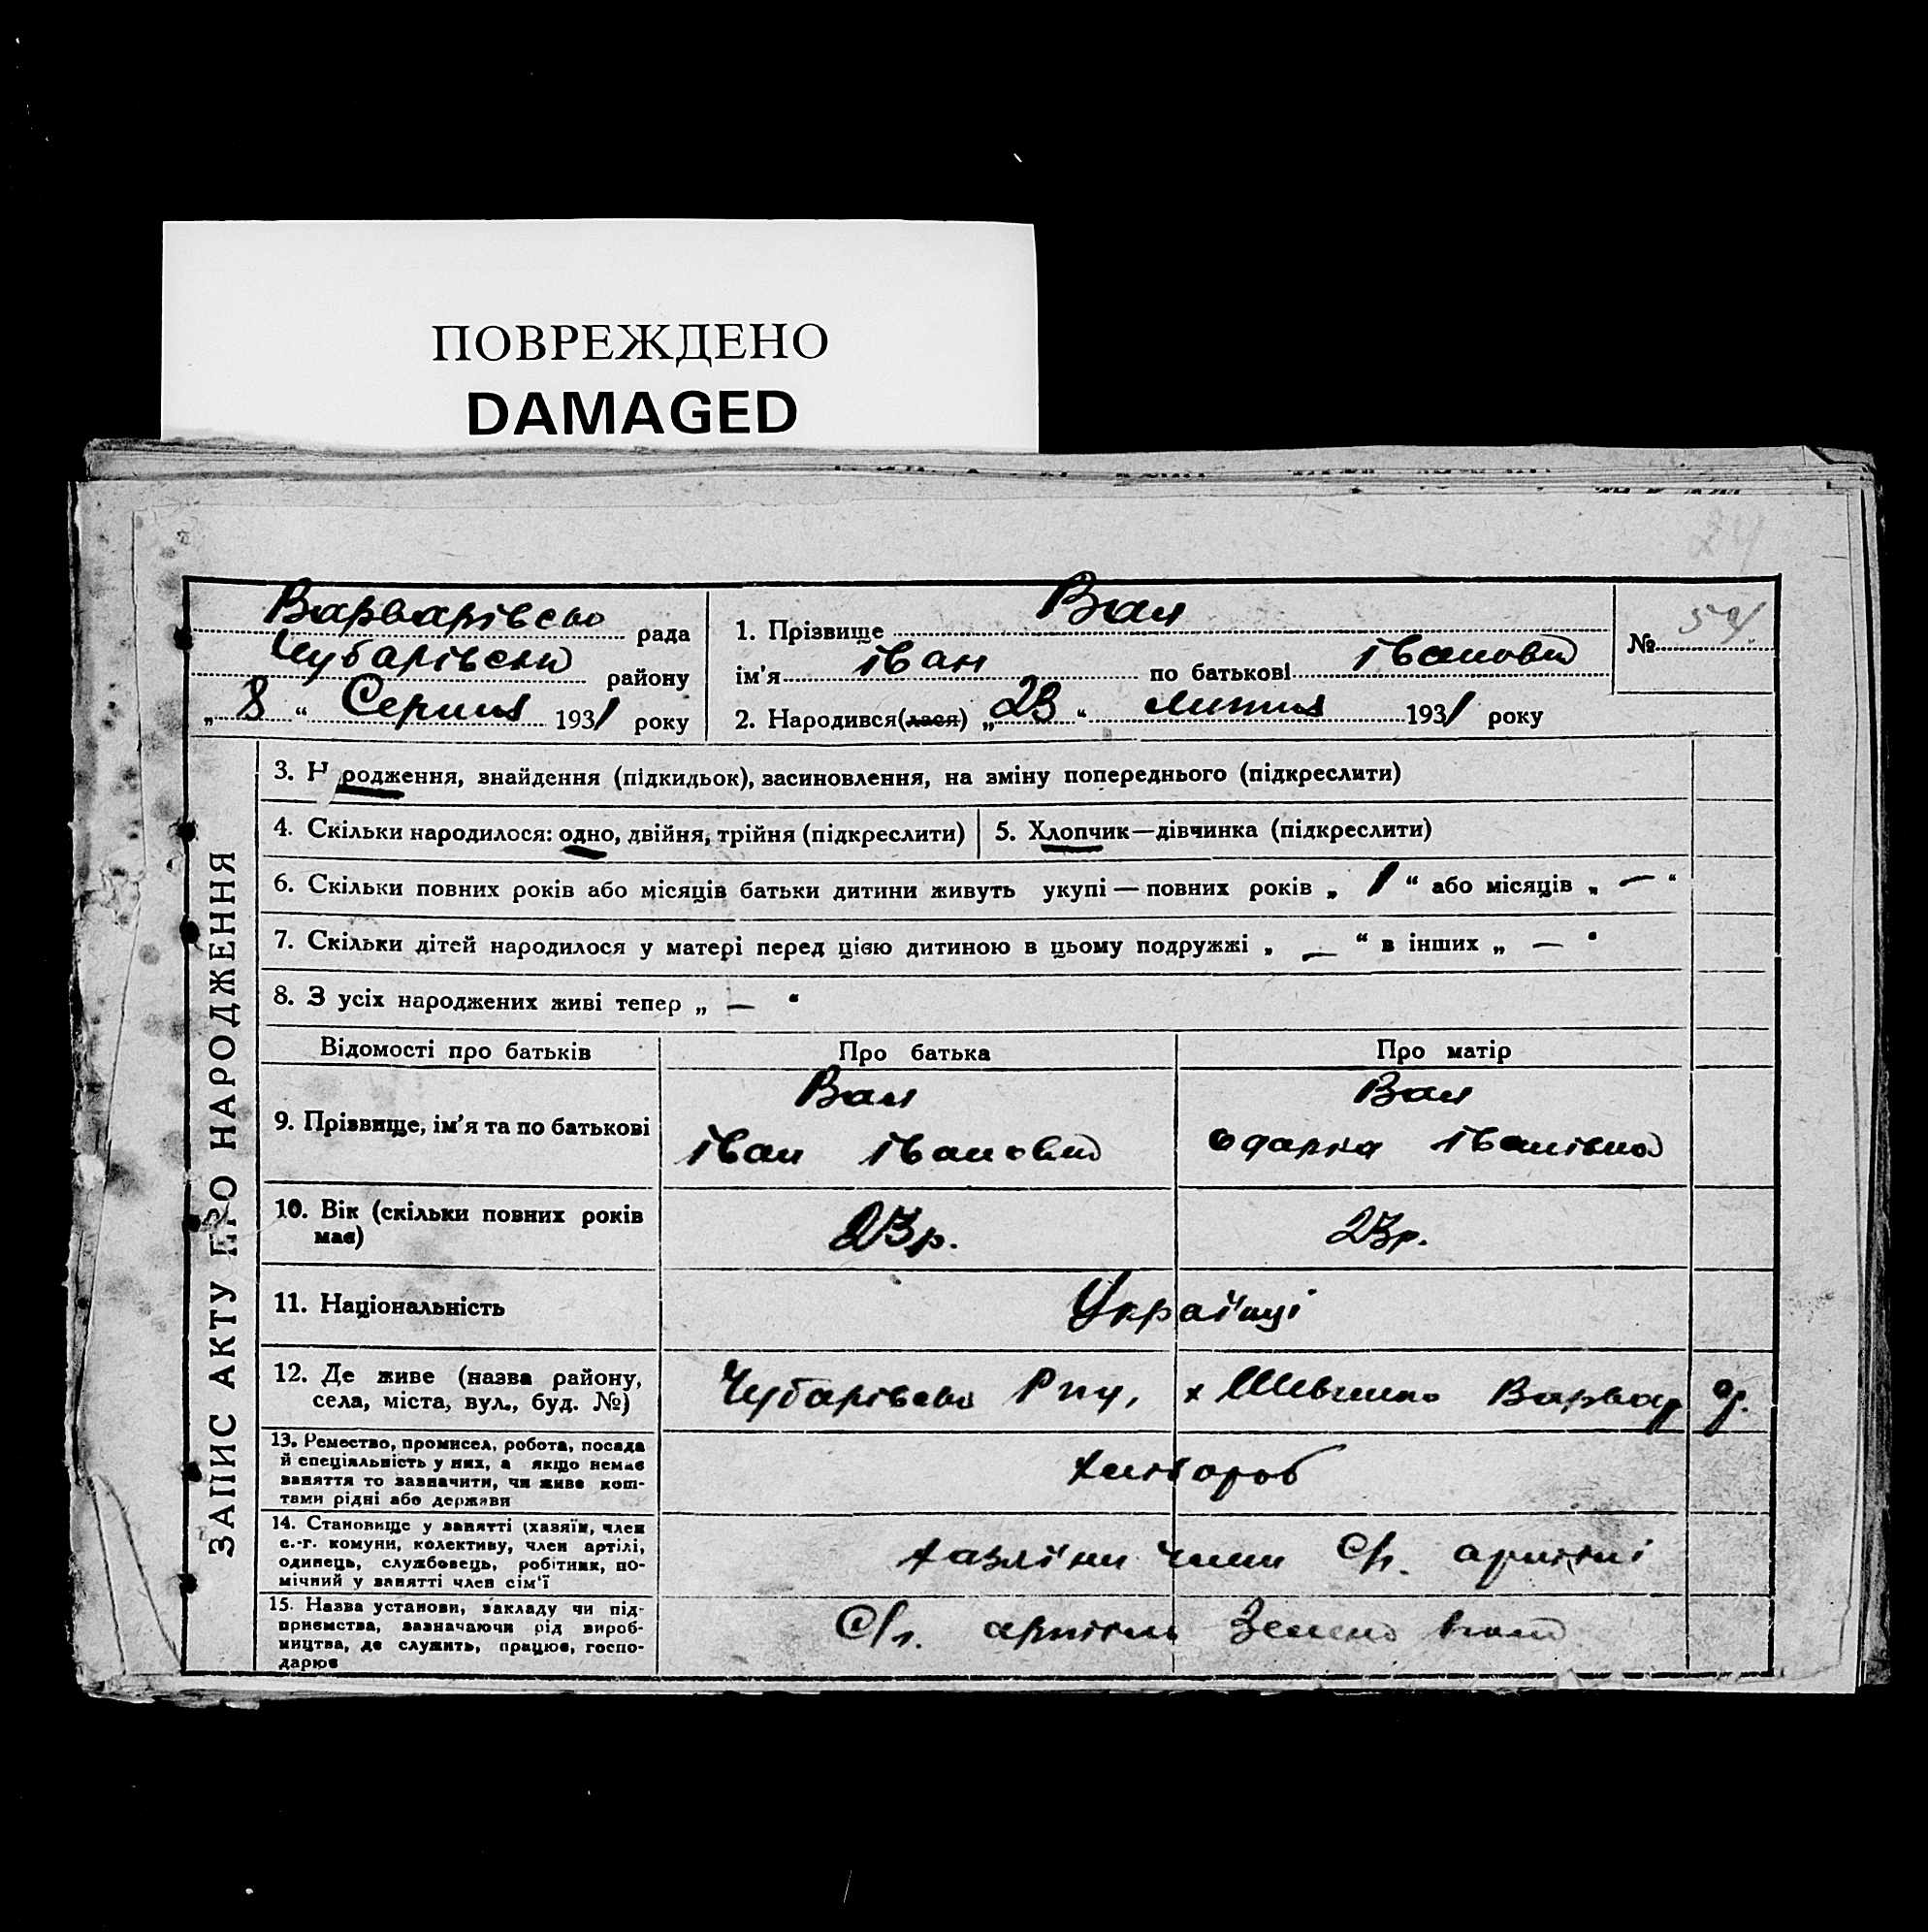 ПОВРЕЖДЕНО
DAMAGED
24
Варварівсько рада
Чубарівськ району
„ 8 “ Серпня 1931 року
1. Прізвище
ім'я Іван по батькові Іванович
2. Народився(лася) „ 23 “ 1931 року
№ 54
ЗАПИС АКТУ ПРО НАРОДЖЕННЯ
3. Народження, знайдення (підкидьок), засиновлення, на зміну попереднього (підкреслити)
4. Скільки народилося: одно, двійня, трійня (підкреслити)
5. Хлопчик—дівчинка (підкреслити)
6. Скільки повних років або місяців батьки дитини живуть укупі — повних років „ 1 “ або місяців „ — “
7. Скільки дітей народилося у матері перед цією дитиною в цьому подружжі „ — “ в інших „ — “
8. З усіх народжених живі тепер „ — “
Відомості про батьків Про батька Про матір
9. Прізвище, ім'я та по батькові
Іван Іванович
Одарка Іванівна
10. Вік (скільки повних років
має)
23 р.
23 р.
11. Національність
Українці
12. Де живе (назва району,
села, міста, вул., буд. №)
Чубарівсько Рну, х Шевченко Варвар
13. Ремество, промисел, робота, посада
й спеціяльність у них, а якщо немає
заняття то зазначити, чи живе кош-
тами рідні або держави
хлібороб
14. Становище у занятті (хазяїн, член
с.-г. комуни, колективу, член артілі,
одинець, службовець, робітник, по-
мічний у занятті член сім'ї
хазяїни члени С/г. артілі
15. Назва установи, закладу чи під-
приємства, зазначаючи рід вироб-
ництва, де служить, працює, госпо-
дарює
С/г. артіль